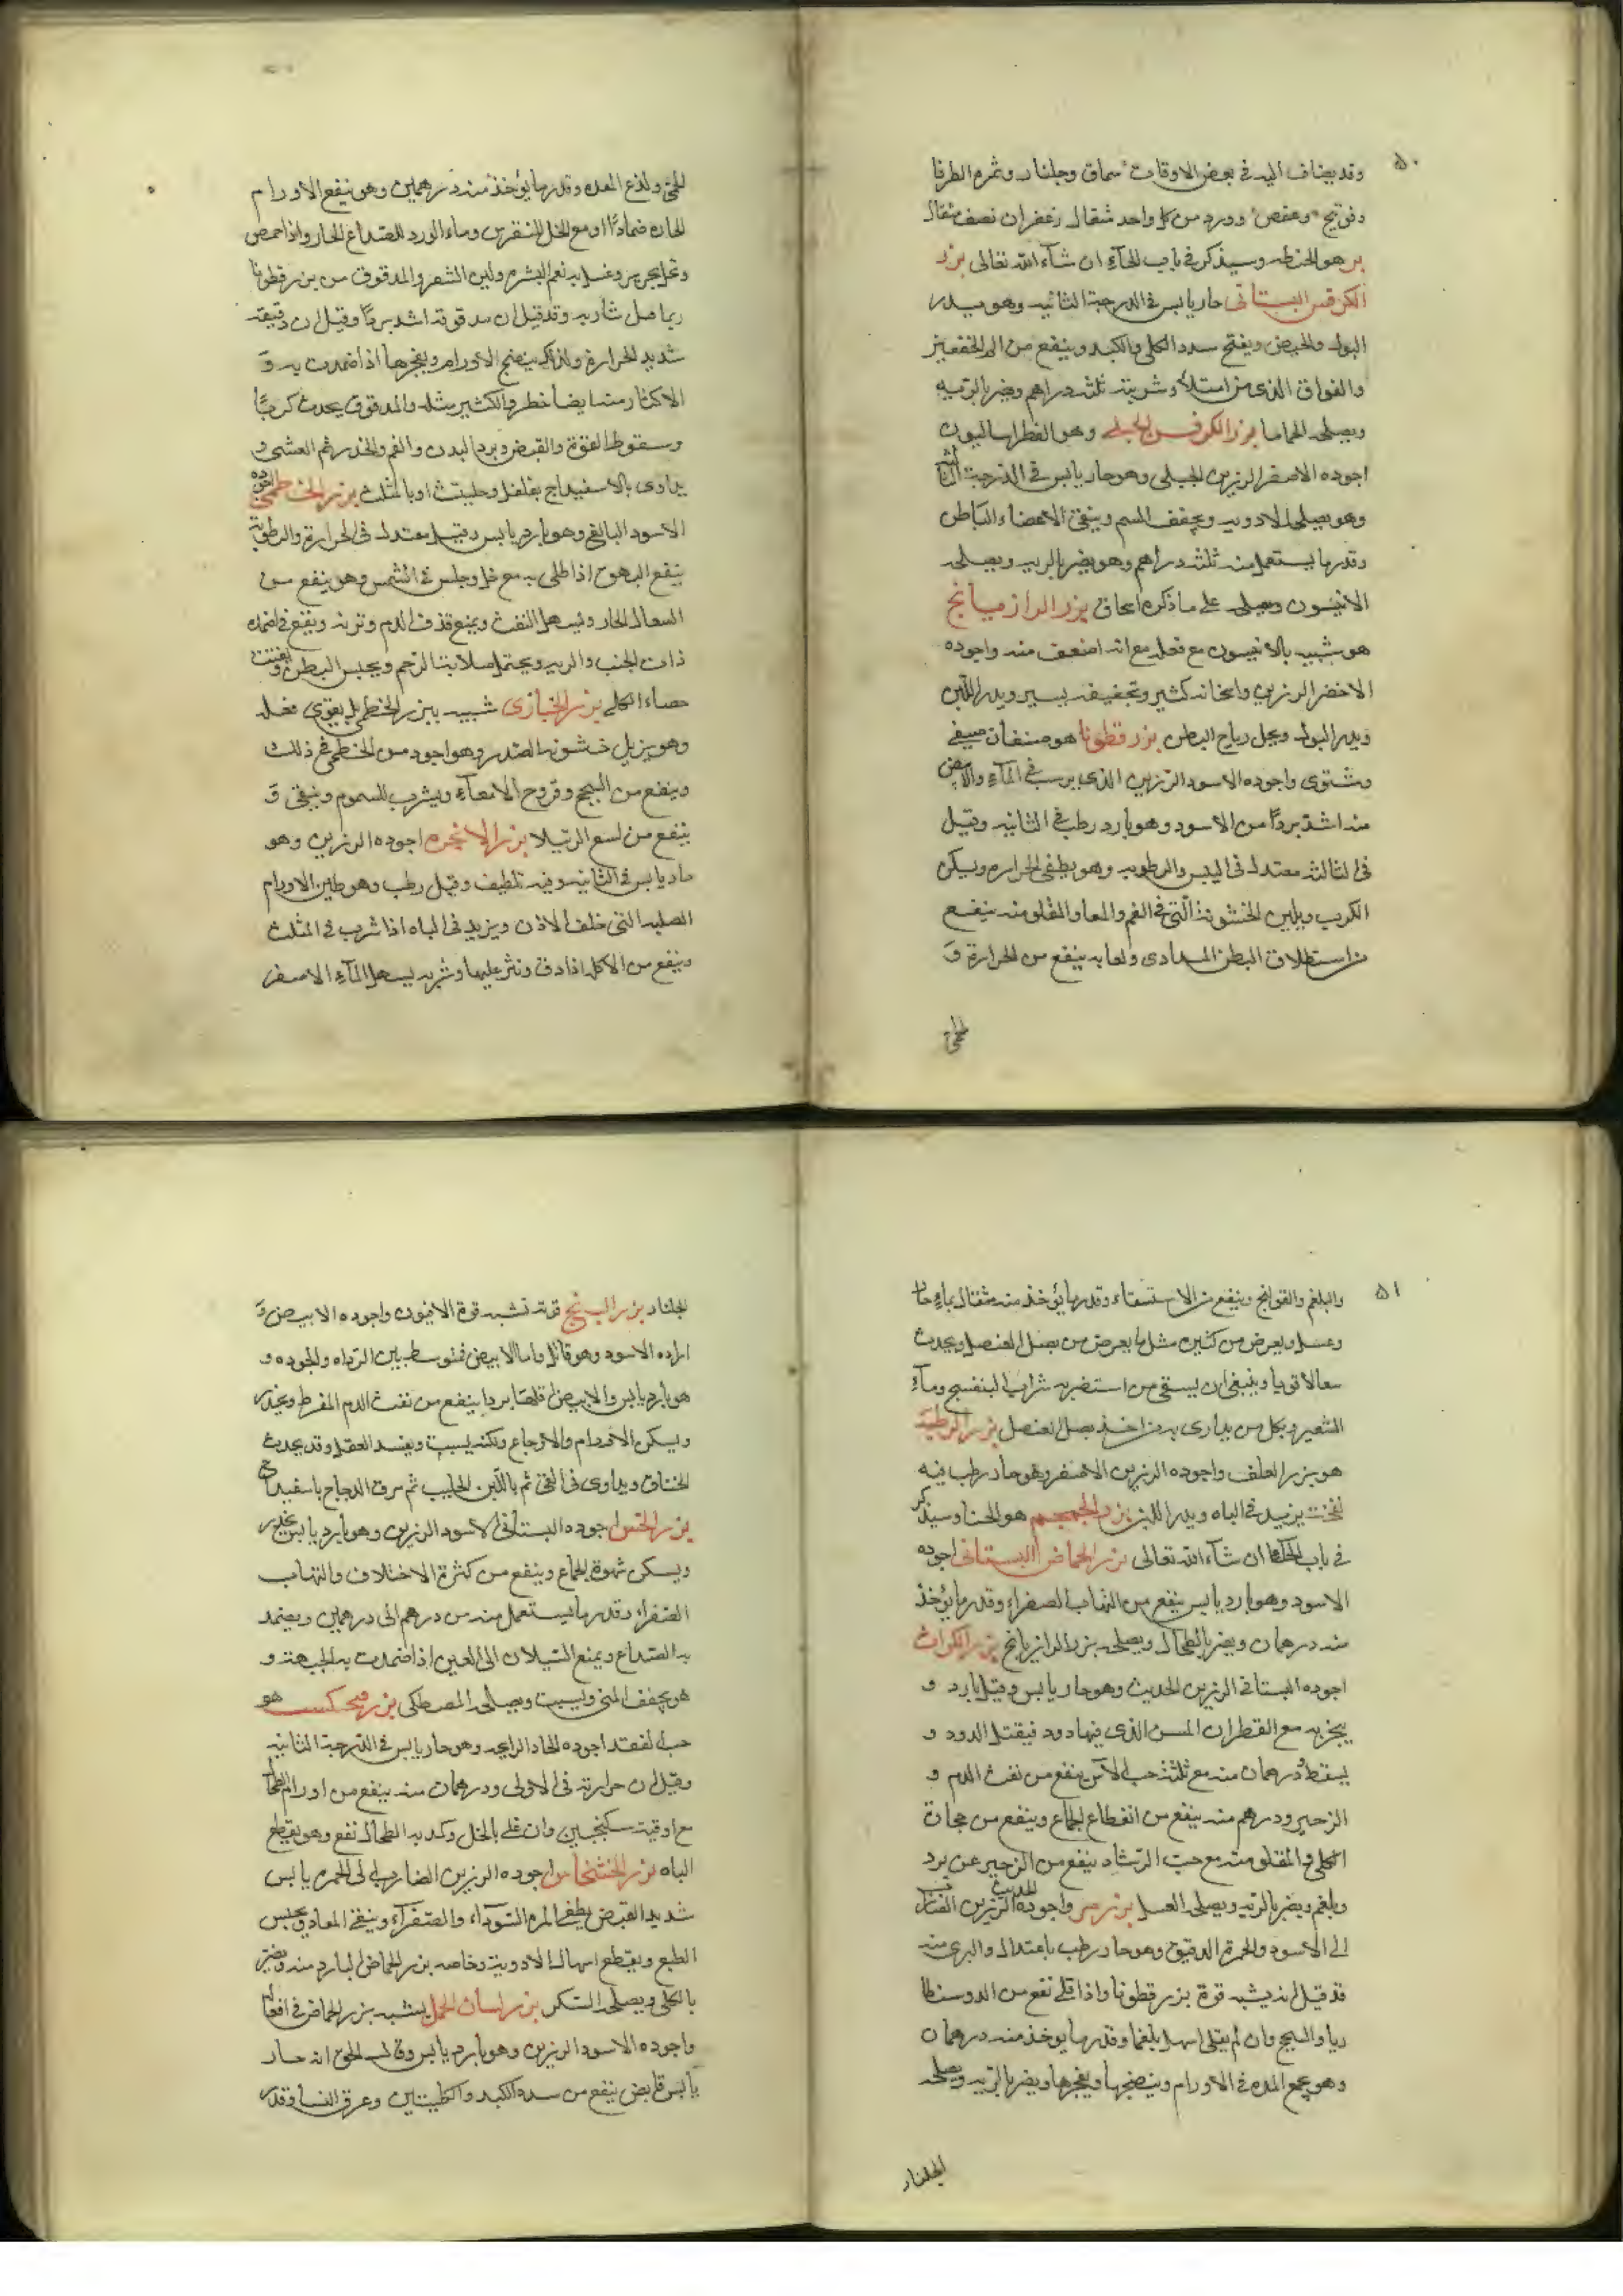 ٥٠
وقد يضاف اليه في بعض الاوقات سماق وجلنار وثمره الطرفا
وعفص وورد من كل واحد مثقال زعفران نصف مثقال
بر هو الحنطه وسيذكر في باب الحآء ان شآء الله تعالى بزر
الكرفس البستاني حار يابس في الدرجة الثانيه وهو يدر
البول والحيض ويفتح سدد الكلى والكبد وينفع من
والفواق الذي من امتلاء وشربته ثلثه دراهم ويضر بالريه
ويصلحه الحماما بزر الكرفس الجبلى وهو الفطراساليون
اجوده الاصفر الرزين الجبلى وهو حار يابس في الدرجة الثالثه
وهو يصلح الادويه ويجفف الجسم وينقى الاعضاء الباطن
وقدر ما يستعمل منه ثلثه دراهم وهو يضر بالريه ويصلحه
الانيسون ويصلحه على ما ذكره اسحاق بزر الرازيانج
هو شبيه بالانيسون مع فعله مع انه اضعف منه واجوده
الاخضر الرزين واسخانه كثير وتجفيفه يسير ويدر اللبن
ويدر البول ويحل رياح البطن بزر قطونا هو صنفان صيفى
وشتوى واجوده الاسود الرزين الذي يرسب في المآء والابيض
منه اشد بردًا من الاسود وهو بارد رطب في الثانيه وقيل
في الثالثه معتدل في اليبس والرطوبه وهو يطفى الحراره ويسكن
الكرب ويلين الخشونة التي في الفم والمعا والمقلو منه ينفع
من استطلاق البطن المرادى ولعابه ينفع من الحرارة و
للحمى
للحمى ولذع المعده وقدر ما يؤخذ منه درهمين وهو ينفع الاورام
الحاره ضمادًا او مع الخل للنقرس وماء الورد للصداع الحار واذا حمص
وغسل به نعم البشره ولين الشعر والمدقوق من بزر قطونا
ربما قتل شاربه وقد قيل ان مدقوقه اشد بردًا وقيل ان دقيقه
شديد الحرارة ولذلك ينضج الاورام ويفجرها اذا ضمدت به و
الاكثار منه ايضا خطر والكثير مثله والمدقوق يحدث كربًا
وسقوط القوة والقبض وبرد البدن والغم والخدر ثم الغشى و
يداوى بالاسفيداج بفلفل وحلتيت او بالمثلث بزر الخطمى اجوده
الاسود البالغ وهو بارد يابس وقيل معتدل في الحرارة والرطوبة
ينفع البهق اذا طلى به مع خل وجلس في الشمس وهو ينفع من
السعال الحار ويسهل النفث ويمنع قذف الدم وينفع في اضمده
ذات الجنب والريه ويحتمل لصلابة الرحم ويحبس البطن ويفتت
حصاء الكلى بزر الخبازى شبيه ببزر الخطمى بل يقوى فعله
وهو يزيل خشونه الصدر وهو اجود من الخطمى في ذلك
وينفع من السحج وقروح الامعآء ويشرب للسموم وينقى و
ينفع من لسع الرتيلا بزر الانجره اجوده الرزين وهو
حار يابس في الثانيه وفيه تلطيف وقيل رطب وهو يلين الاورام
الصلبه التى خلف الاذن ويزيد في الباه اذا شرب في المثلث
وينفع من الاكله اذا دق ونثر عليها وشربه يسهل المآء الاصفر
٥١
والبلغم والقولنج وينفع من الاستسقاء وقدر ما يؤخذ منه مثقال بماء حار
وعسل ويعرض من كثيره مثل ما يعرض من بصل العنصل ويحدث
سعالا قويا وينبغى ان يسقى من استضر به شراب البنفسج ومآء
الشعير وبكل من يداوى به من اخذ بصل العنصل بزر الرطبة
هو بزر العلف واجوده الرزين الاصفر وهو حار رطب فيه
نفخ يزيد في الباه ويدر اللبن بزر الحمحم هو الحنا وسيذكر
في باب الحآء ان شآء الله تعالى بزر الحماض البستانى اجوده
الاسود وهو بارد يابس ينفع من التهاب الصفراء وقدر ما يؤخذ
منه درهمان ويضر بالطحال ويصلحه بزر الرازيانج بزر الكراث
اجوده البستانى الرزين الحديث وهو حار يابس وقيل بارد و
يبخر به مع القطران السن الذي فيها دود فيقتل الدود و
يسقط ودرهمان منه مع ثلثه حب الاس ينفع من نفث الدم و
الزحير ودرهم منه ينفع من انقطاع الجماع وينفع من
الكلى والمقلو منه مع حب الرشاد ينفع من الزحير عن برد
وبلغم ويضر بالريه ويصلحه العسل بزر مر واجوده الحديث الرزين الضارب
الى الاسود والحمرة الدقيق وهو حار رطب باعتدال والبرى منه
قد قيل انه يشبه قوة بزر قطونا واذا قلى نفع من الدوسنطا
ريا والسحج وان لم يقلى اسهل بلغما وقدر ما يوخذ منه درهمان
وهو يجمع المده في الاورام وينضجها ويفجرها ويضر بالريه ويصلحه
الجلنار
الجلنار بزر البنج قوته تشبه قوة الافيون واجوده الابيض و
ارداه الاسود وهو قاتل واما الابيض فمتوسط بين الرداه والجوده و
هو بارد يابس والابيض اقلها بردا ينفع من نفث الدم المفرط ويخدر
ويسكن الاورام والاوجاع ولكنه يسبت ويفسد العقل وقد يحدث
الخناق ويداوى في القئ ثم باللبن الحليب ثم مرق الدجاج باسفيداج
بزر الخس اجوده البستانى الاسود الرزين وهو بارد يابس يخدر
ويسكن شهوة الجماع وينفع من كثرة الاختلاف والتهاب
الصفراء وقدر ما يستعمل منه من درهم الى درهمين ويضمد
به الصداع ويمنع السيلان الى العين اذا ضمدت به الجبهة و
هو يجفف المنى ويسبت ويصلحه المصطكى بزر فنجنكست هو
حب الفقد اجوده الحاد الرايحه وهو حار يابس في الدرجة الثانيه
وقيل ان حرارته في الاولى ودرهمان منه ينفع من اورام الطحال
مع اوقية سكنجبين وان قلى بالخل وكمد به الطحال نفع وهو يقطع
الباه بزر الخشخاش اجوده الرزين الضارب الى الحمره يابس
شديد القبض يطفى المره السودآء والصفرآء وينقى المعا ويحبس
الطبع ويقطع اسهال الادوية وخاصه بزر الحماض البارد منه ويضر
بالكلى ويصلحه السكر بزر لسان الحمل يشبه بزر الحماض في افعاله
واجوده الاسود الرزين وهو بارد يابس وقال انه حار
يابس قابض ينفع من سدد الكبد والكليتين وعرق النسا وقدر